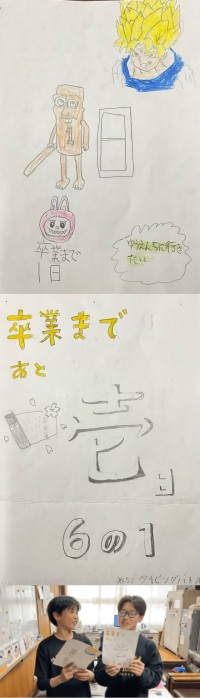 日
卒業まで
1日
ゆうえんちに行き
たい
卒業まで
あと
壱
日
6の1